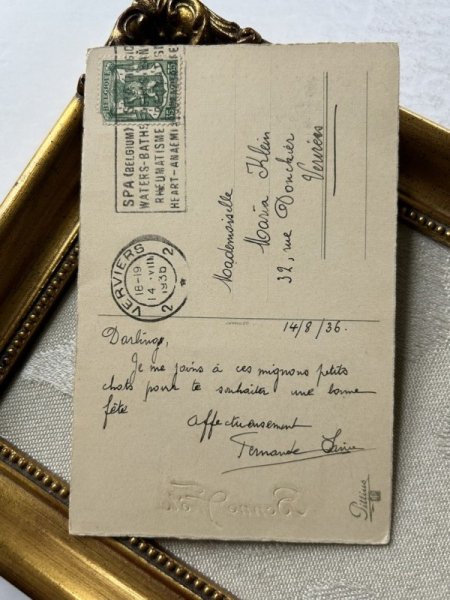 BELGIQUE
SPA (BELGIUM)
WATERS-BATHS
RHEUMATISME
HEART-ANAEMI
VERVIERS
18-19
14 VIII
1936
2 2
Mademoiselle
Maria Klein
32, rue Donckier
Verviers
14/8/36.
Darling,
Je me joins à ces mignons petits
chats pour te souhaiter une bonne
fête
Affectueusement
Fernande
Bonne Fête